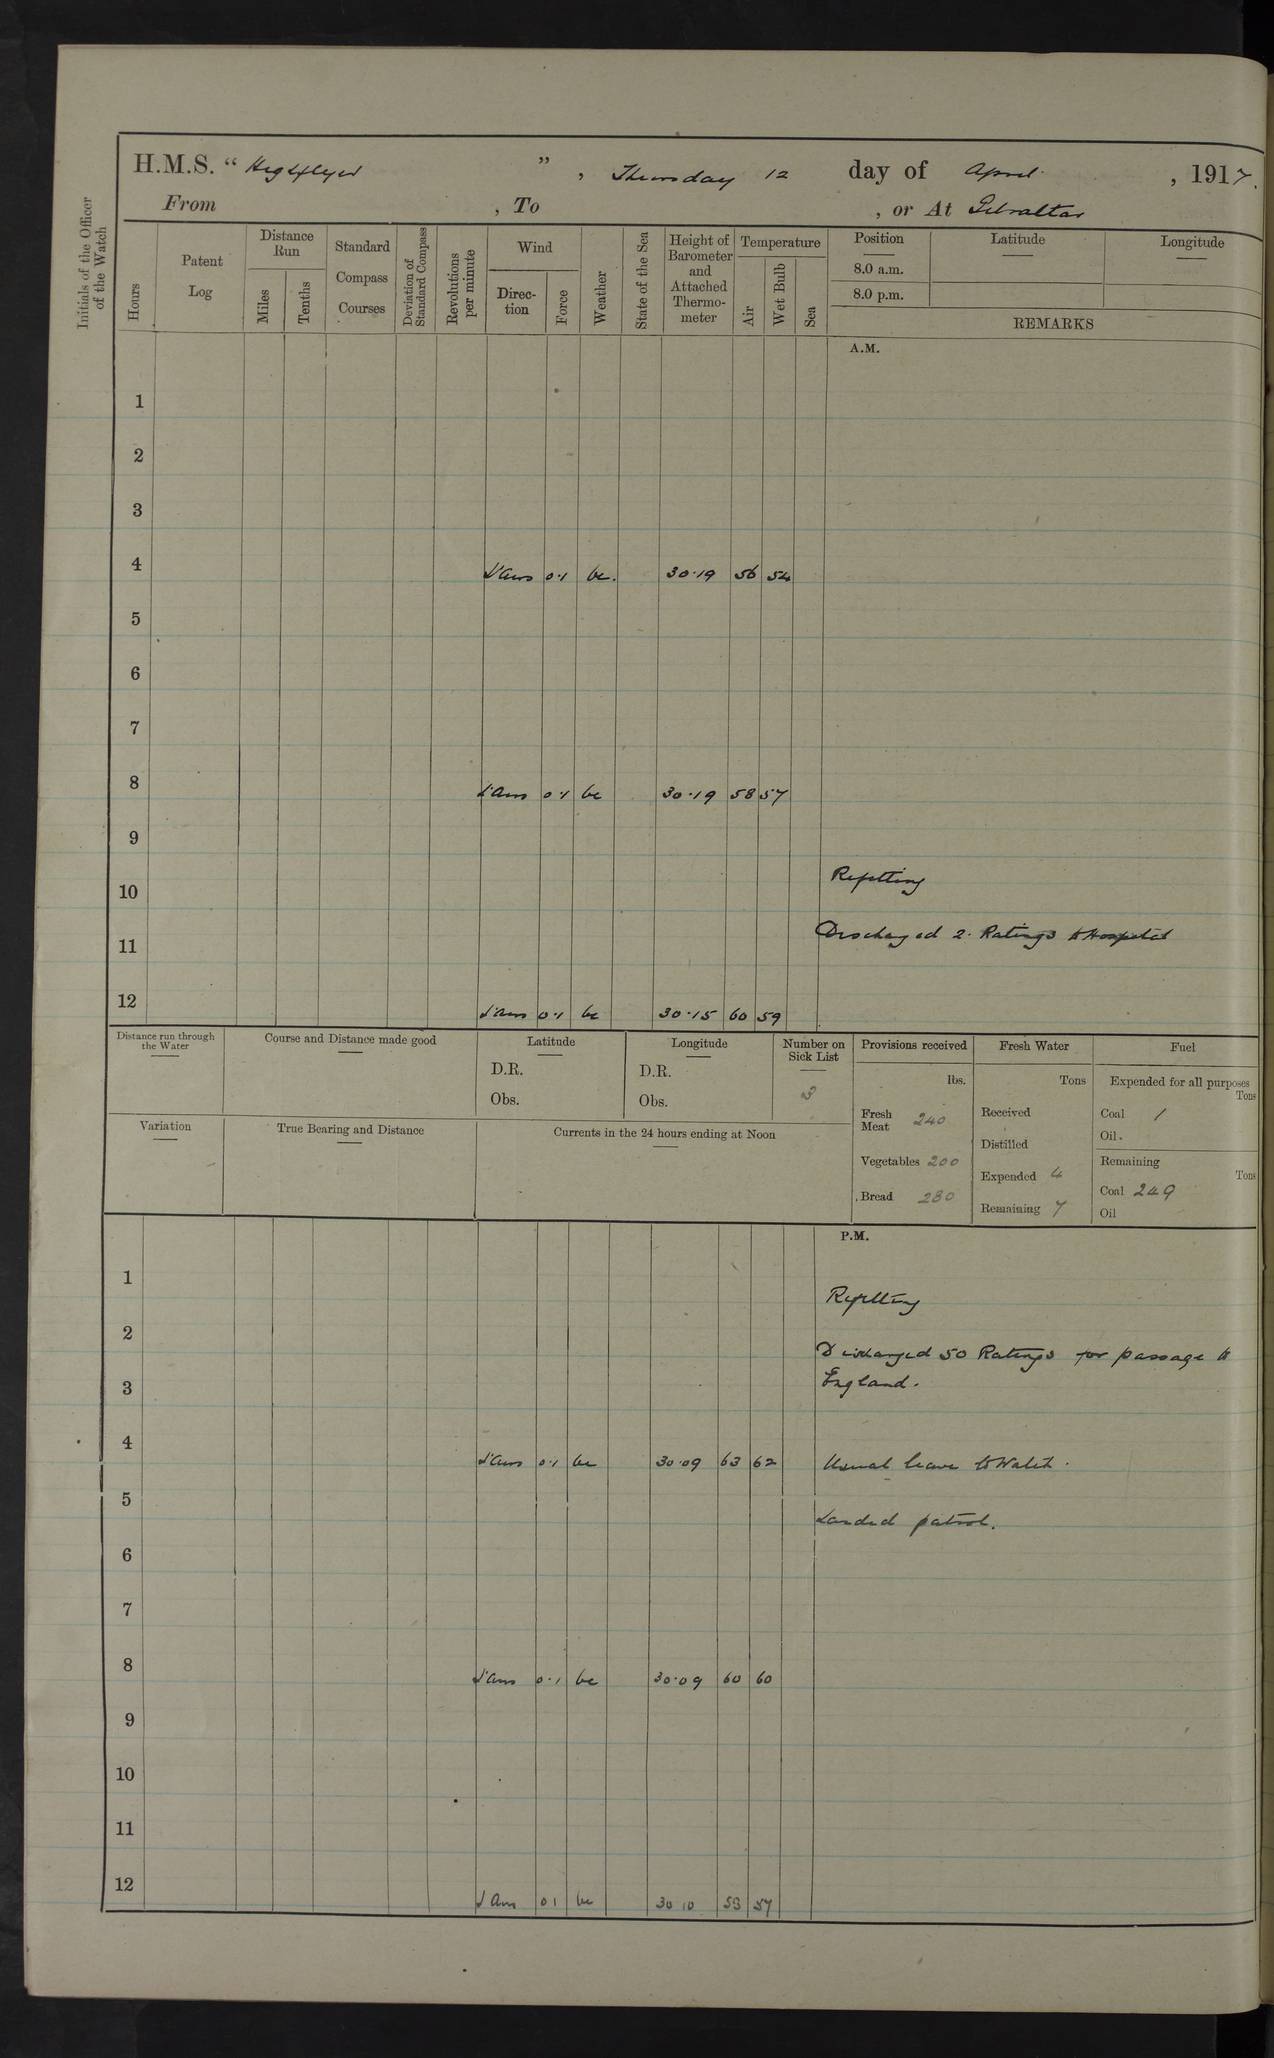 H.M.S. “ Highflyer ”, Thursday 12 day of April, 1917.
From , To , or At Gibraltar
Initials of the Officer of the Watch
Hours
Patent Log
Distance Run
Miles
Tenths
Standard Compass Courses
Deviation of Standard Compass
Revolutions per minute
Wind
Direc-tion
Force
Weather
State of the Sea
Height of Barometer and Attached Thermo-meter
Temperature
Air
Wet Bulb
Sea
Position
Latitude
Longitude
8.0 a.m.
8.0 p.m.
REMARKS
A.M.
1
2
3
4 L'airs 0·1 bc. 30·19 56 54
5
6
7
8 L'airs 0·1 bc 30·19 58 57
9
Refitting
10
Discharged 2 Ratings to Hospital
11
12 L'airs 0·1 bc 30·15 60 59
Distance run through the Water
Course and Distance made good
Latitude
D.R.
Obs.
Longitude
D.R.
Obs.
Number on Sick List
3
Provisions received
lbs.
Fresh Meat 240
Vegetables 200
Bread 280
Fresh Water
Tons
Received
Distilled
Expended 4
Remaining 7
Fuel
Expended for all purposes
Tons
Coal 1
Oil.
Remaining
Tons
Coal 249
Oil
Variation
True Bearing and Distance
Currents in the 24 hours ending at Noon
P.M.
1
Refitting
2
Discharged 50 Ratings for passage to
3 England.
4 L'airs 0·1 bc 30·09 63 62 Usual leave to Watch.
5
Landed patrol.
6
7
8 L'airs 0·1 bc 30·09 60 60
9
10
11
12 L airs 0 1 bc 30 10 58 57